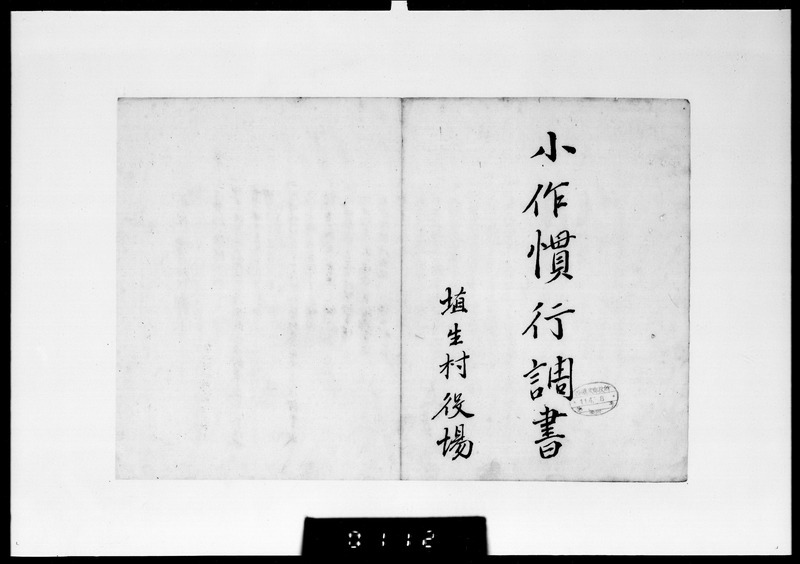 小作慣行調書
埴生村役場
0112